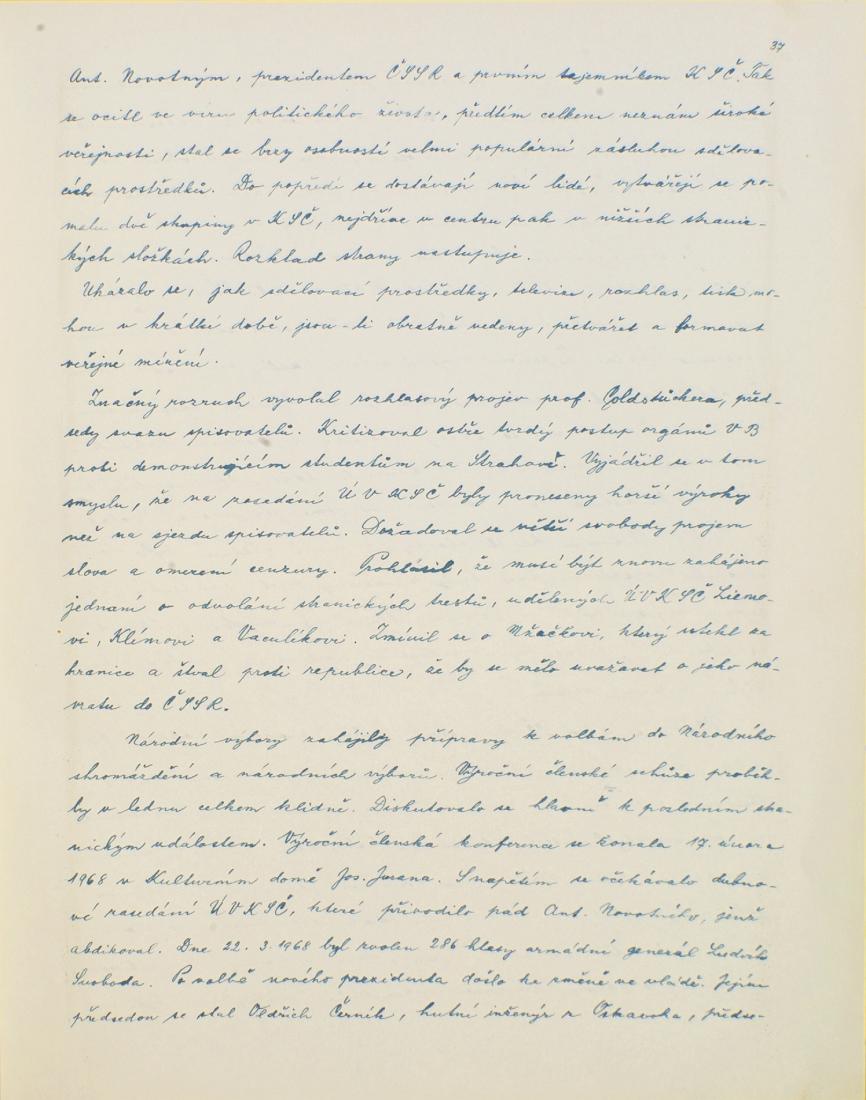 37
Ant. Novotným, prezidentem ČSSR a prvním tajemníkem KSČ. Tak
se ocitl ve víru politického života, předtím celkem neznám široké
veřejnosti, stal se brzy osobností velmi populární zásluhou sdělova-
cích prostředků. Do popředí se dostávají noví lidé, vytvářejí se po-
malu dvě skupiny v KSČ, nejdříve v centru pak v nižších stranic-
kých složkách. Rozklad strany nastupuje.
Ukázalo se, jak sdělovací prostředky, televize, rozhlas, tisk mo-
hou v krátké době, jsou-li obratně vedeny, přetvářet a formovat
veřejné mínění.
Značný rozruch vyvolal rozhlasový projev prof. Goldstückera, před-
sedy svazu spisovatelů. Kritizoval ostře tvrdý postup orgánů VB
proti demonstrujícím studentům na Strahově. Vyjádřil se v tom
smyslu, že na zasedání ÚV KSČ byly proneseny horší výroky
než na sjezdu spisovatelů. Dožadoval se větší svobody projevu
slova a omezení cenzury. Prohlásil, že musí být znovu zahájeno
jednaní o odvolání stranických trestů, udělených ÚVKSČ Liemo-
vi, Klímovi a Vaculíkovi. Zmínil se o Mňačkovi, který utekl za
hranice a štval proti republice, že by se mělo uvažovat o jeho ná-
vratu do ČSSR.
Národní výbory zahájily přípravy k volbám do Národního
shromáždění a národních výborů. Výroční členské schůze proběh-
ly v lednu celkem klidně. Diskutovalo se hlavně k posledním stra-
nickým událostem. Výroční členská konference se konala 17. února
1968 v Kulturním domě Jos. Jurana. S napětím se očekávalo dubno-
vé zasedání ÚVKSČ, které přivodilo pád Ant. Novotného, jenž
abdikoval. Dne 22. 3. 1968 byl zvolen 286 hlasy armádní generál Ludvík
Svoboda. Po volbě nového prezidenta došlo ke změně ve vládě. Jejím
předsedou se stal Oldřich Černík, hutní inženýr z Ostravska, předse-